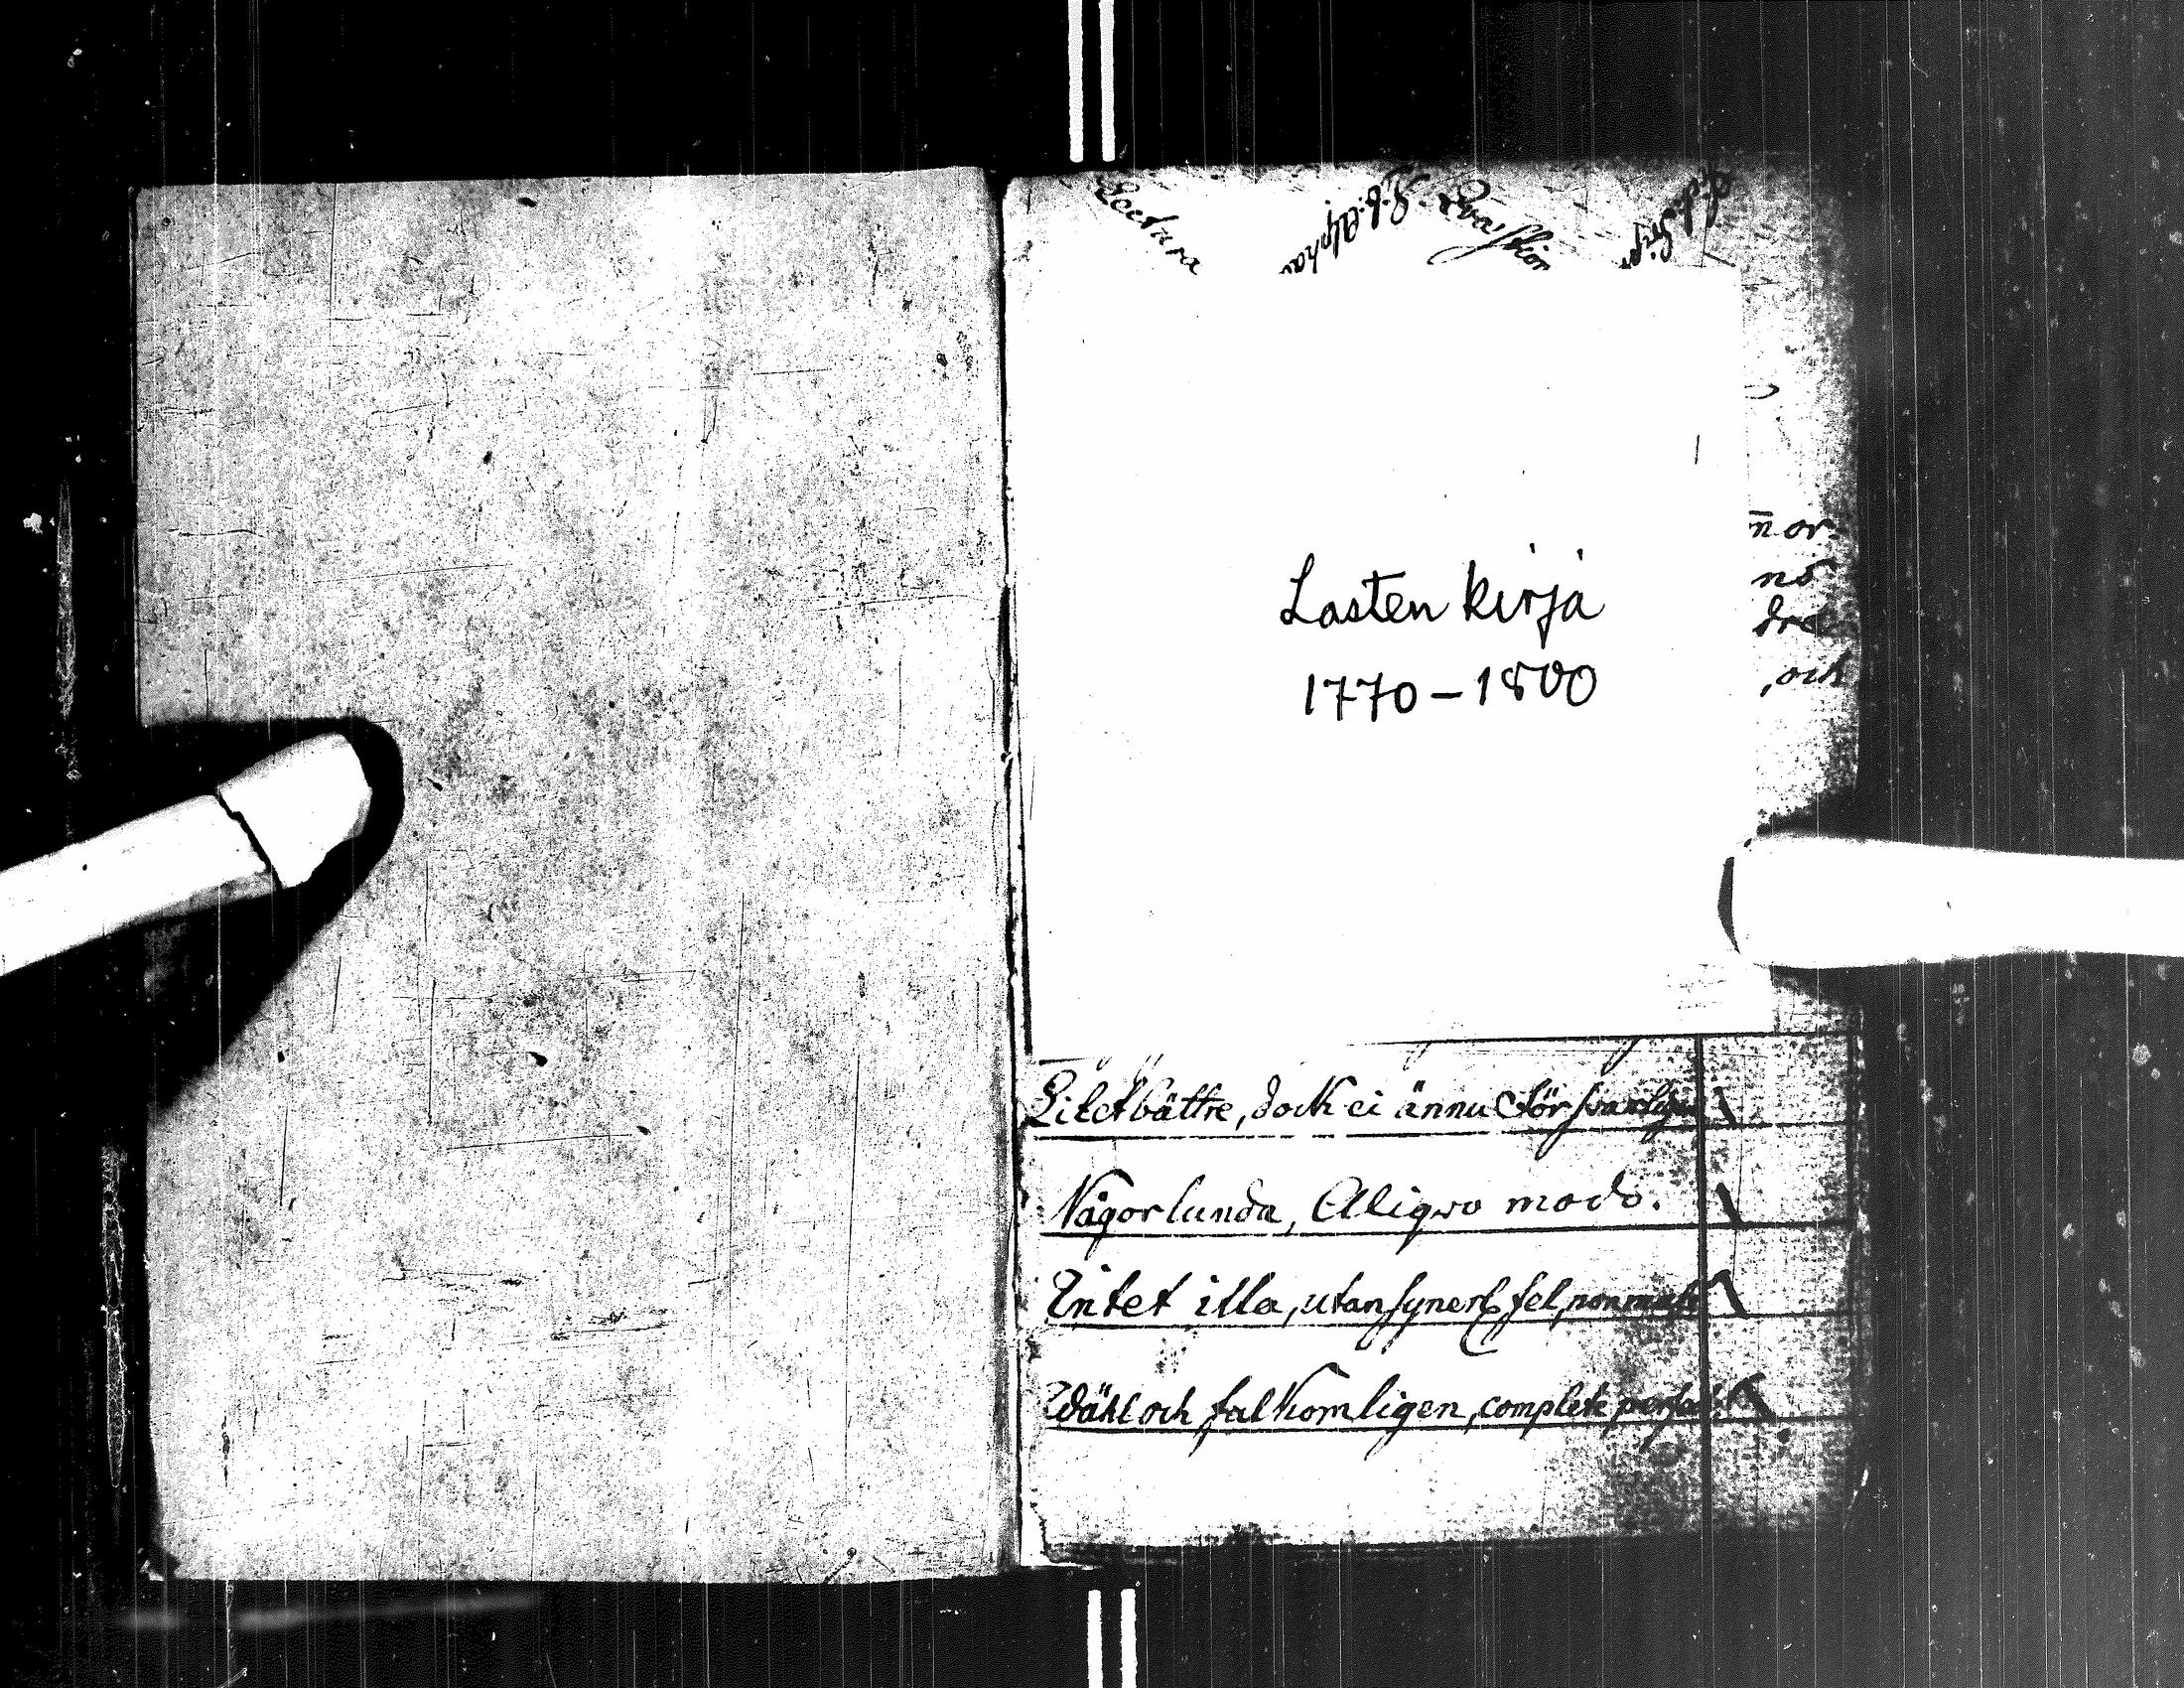 Lectura
Lasten kirja
1770-1800
n or
nö
dre
, och
Litet bättre, doch ei ännu försvarligen
Någorlunda, Aliqvo modo.
Intet illa, utan synerl. fel, non male
Wähl och fulkomligen, complete perfect.